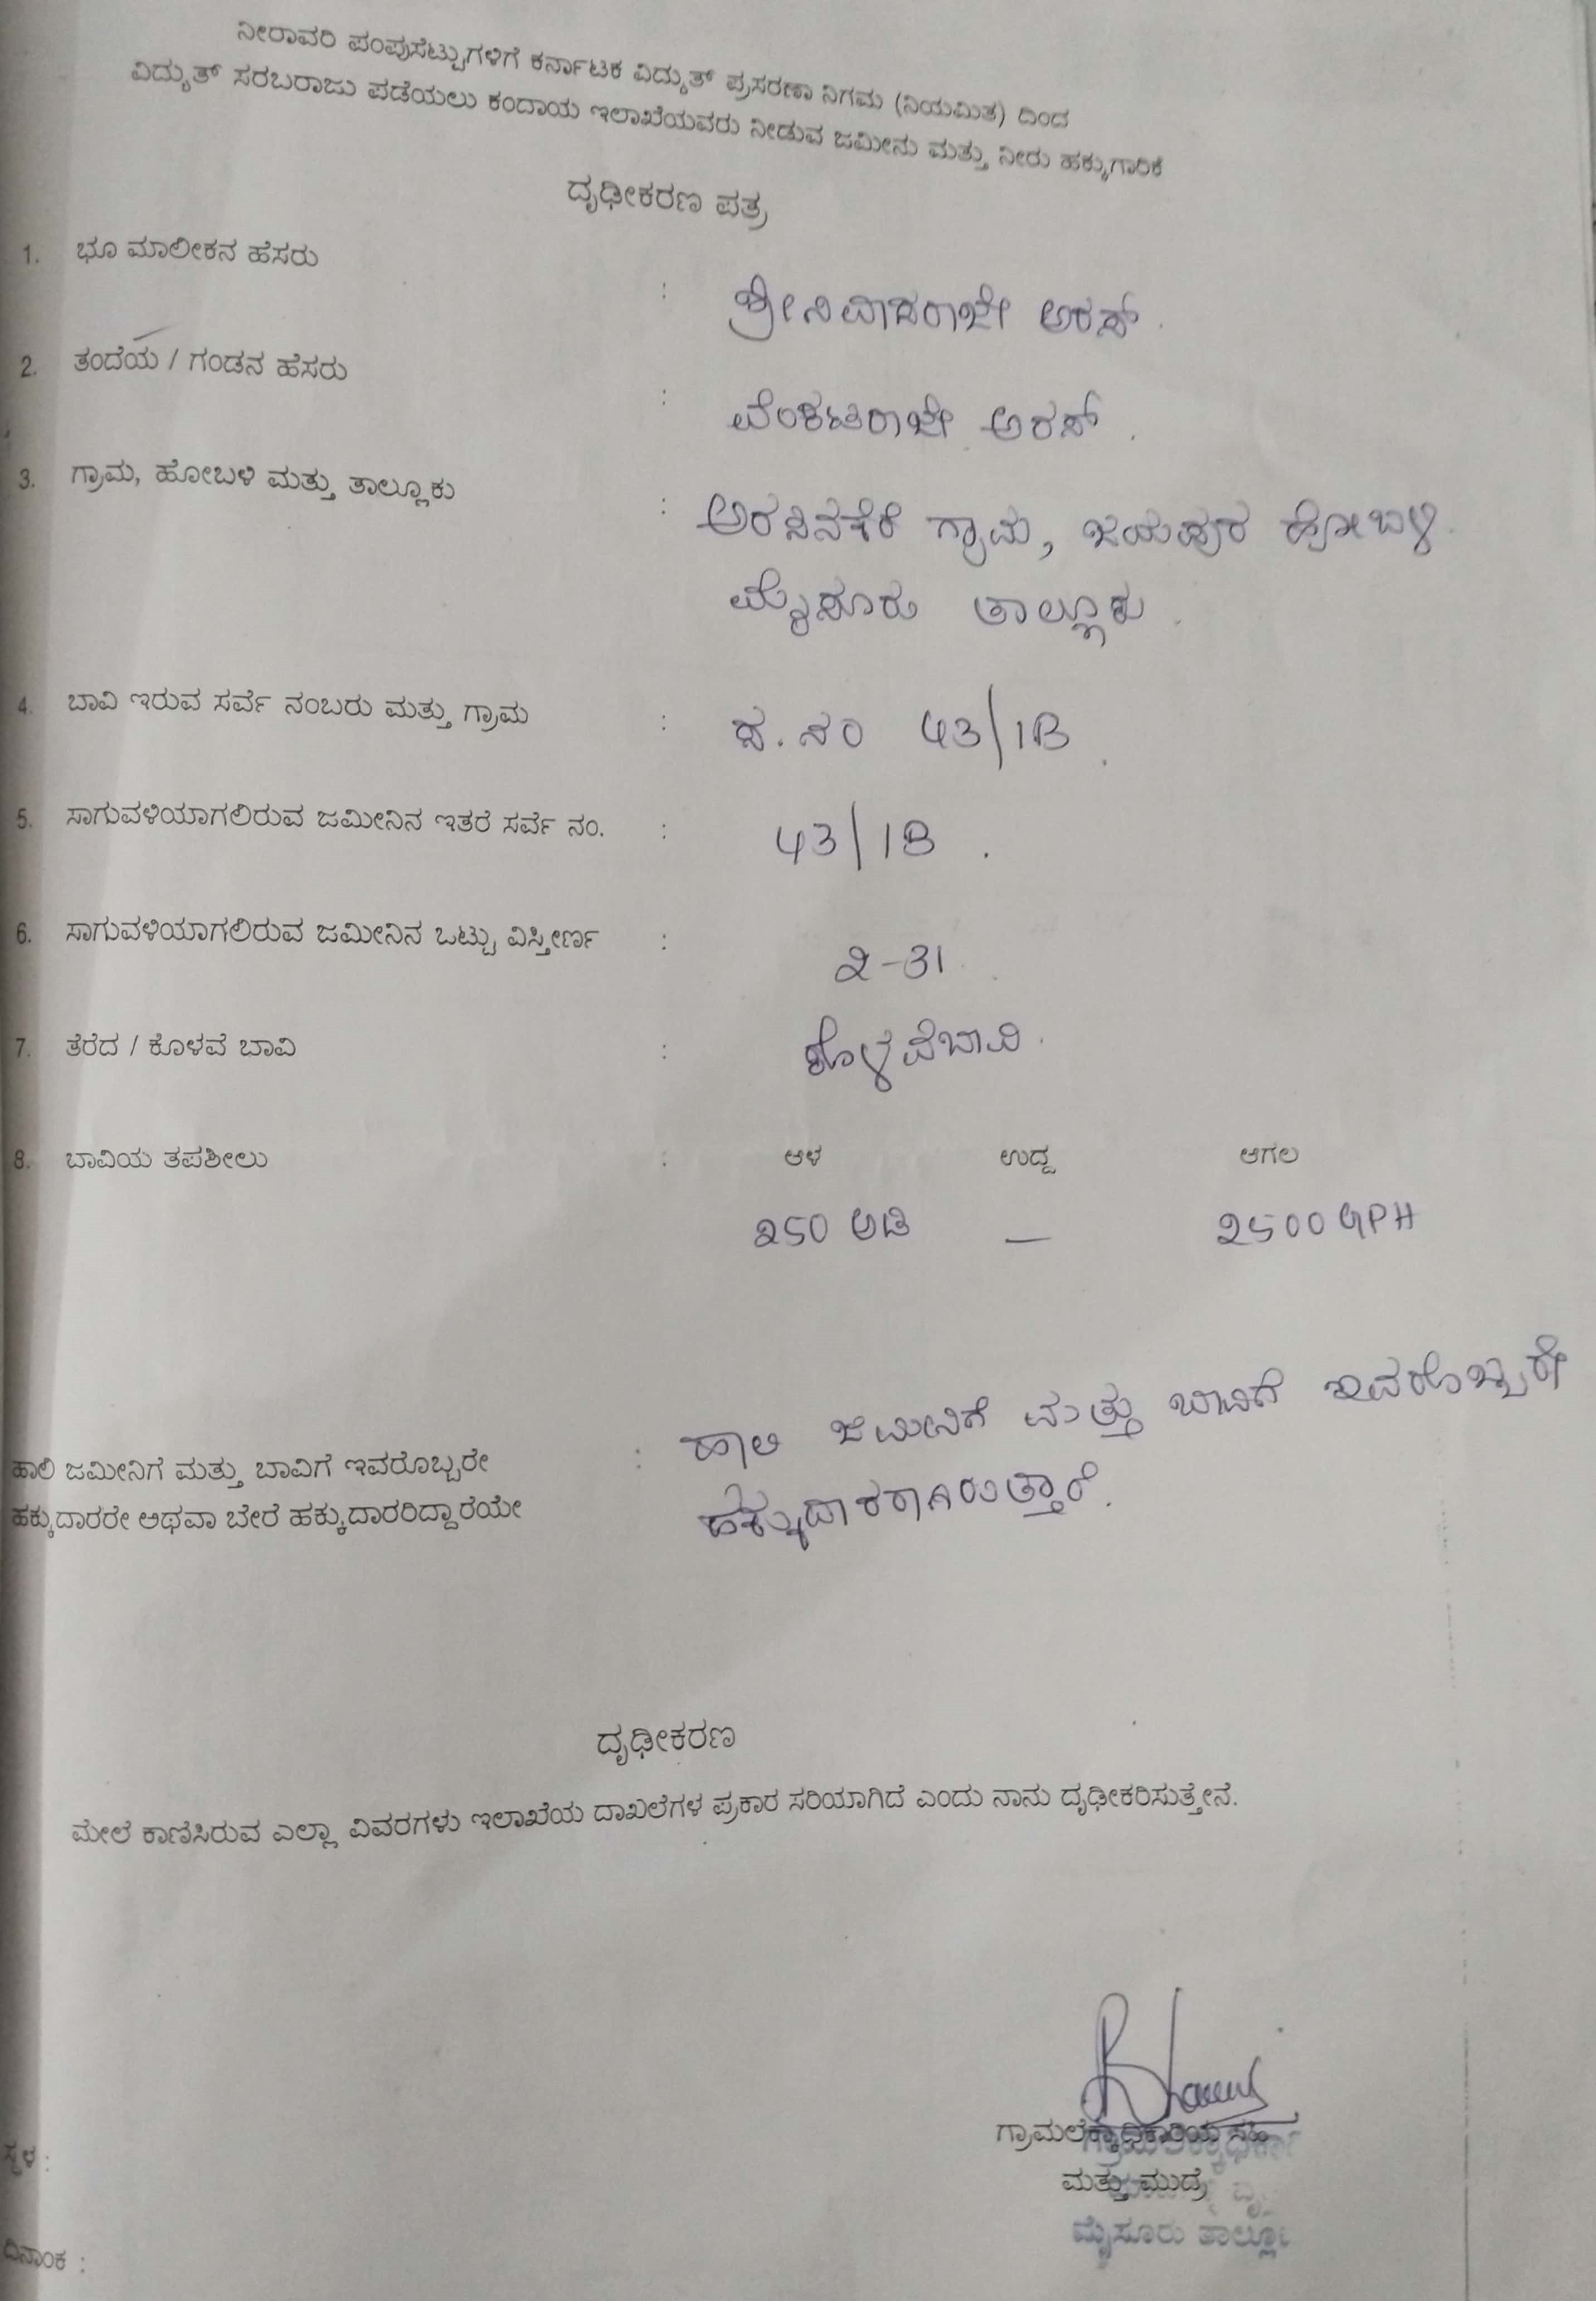 ನೀರಾವರಿ ಪಂಪುಸೆಟ್ಟುಗಳಿಗೆ ಕರ್ನಾಟಕ ವಿದ್ಯುತ್ ಪ್ರಸರಣಾ ನಿಗಮ (ನಿಯಮಿತ) ದಿಂದ
ವಿದ್ಯುತ್ ಸರಬರಾಜು ಪಡೆಯಲು ಕಂದಾಯ ಇಲಾಖೆಯವರು ನೀಡುವ ಜಮೀನು ಮತ್ತು ನೀರು ಹಕ್ಕುಗಾರಿಕೆ
ದೃಢೀಕರಣ ಪತ್ರ
1. ಭೂ ಮಾಲೀಕನ ಹೆಸರು : ಶ್ರೀನಿವಾಸರಾಜೇ ಅರಸ್.
2. ತಂದೆಯ / ಗಂಡನ ಹೆಸರು : ವೆಂಕಟರಾಜೇ ಅರಸ್.
3. ಗ್ರಾಮ, ಹೋಬಳಿ ಮತ್ತು ತಾಲ್ಲೂಕು : ಅರಸಿನಕೆರೆ ಗ್ರಾಮ, ಜಯಪುರ ಹೋಬಳಿ.
ಮೈಸೂರು ತಾಲ್ಲೂಕು.
4. ಬಾವಿ ಇರುವ ಸರ್ವೆ ನಂಬರು ಮತ್ತು ಗ್ರಾಮ : ಸ.ನಂ 43/1B.
5. ಸಾಗುವಳಿಯಾಗಲಿರುವ ಜಮೀನಿನ ಇತರೆ ಸರ್ವೆ ನಂ. : 43/1B.
6. ಸಾಗುವಳಿಯಾಗಲಿರುವ ಜಮೀನಿನ ಒಟ್ಟು ವಿಸ್ತೀರ್ಣ : 2-31.
7. ತೆರೆದ / ಕೊಳವೆ ಬಾವಿ : ಕೊಳವೆಬಾವಿ.
8. ಬಾವಿಯ ತಪಶೀಲು : ಆಳ ಉದ್ದ ಆಗಲ
250 ಅಡಿ — 2500 GPH
ಹಾಲಿ ಜಮೀನಿಗೆ ಮತ್ತು ಬಾವಿಗೆ ಇವರೊಬ್ಬರೇ : ಹಾಲಿ ಜಮೀನಿಗೆ ಮತ್ತು ಬಾವಿಗೆ ಇವರೊಬ್ಬರೇ
ಹಕ್ಕುದಾರರೇ ಅಥವಾ ಬೇರೆ ಹಕ್ಕುದಾರರಿದ್ದಾರೆಯೇ ಹಕ್ಕುದಾರರಾಗಿರುತ್ತಾರೆ.
ದೃಢೀಕರಣ
ಮೇಲೆ ಕಾಣಿಸಿರುವ ಎಲ್ಲಾ ವಿವರಗಳು ಇಲಾಖೆಯ ದಾಖಲೆಗಳ ಪ್ರಕಾರ ಸರಿಯಾಗಿದೆ ಎಂದು ನಾನು ದೃಢೀಕರಿಸುತ್ತೇನೆ.
ಗ್ರಾಮಲೆಕ್ಕಾಧಿಕಾರಿಯ ಸಹಿ
ಸ್ಥಳ :
ಮತ್ತು ಮುದ್ರೆ
ಮೈಸೂರು
ದಿನಾಂಕ :